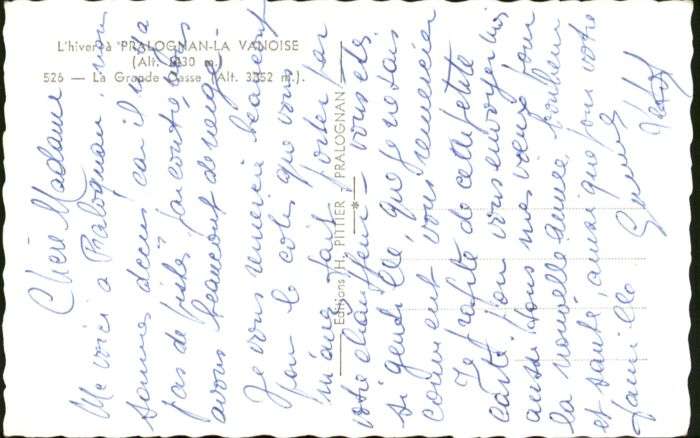 L'hiver à PRALOGNAN-LA VANOISE
(Alt. 1430 m.)
526 — La Grande Casse (Alt. 3352 m.).
Editions H. PITTIER - PRALOGNAN
Chère Madame
Me voici à Pralognan, nous
sommes déçus car il n'y a
pas de par contre nous
avons beaucoup de neige.
Je vous remercie beaucoup
pour le colis que vous
m'avez fait porter par
votre chauffeur — vous êtes
si gentille que je ne sais
comment vous remercier
Je profite de cette petite
carte pour vous envoyer moi
aussi tous mes vœux pour
la nouvelle année, bonheur
et santé ainsi que pour votre
famille